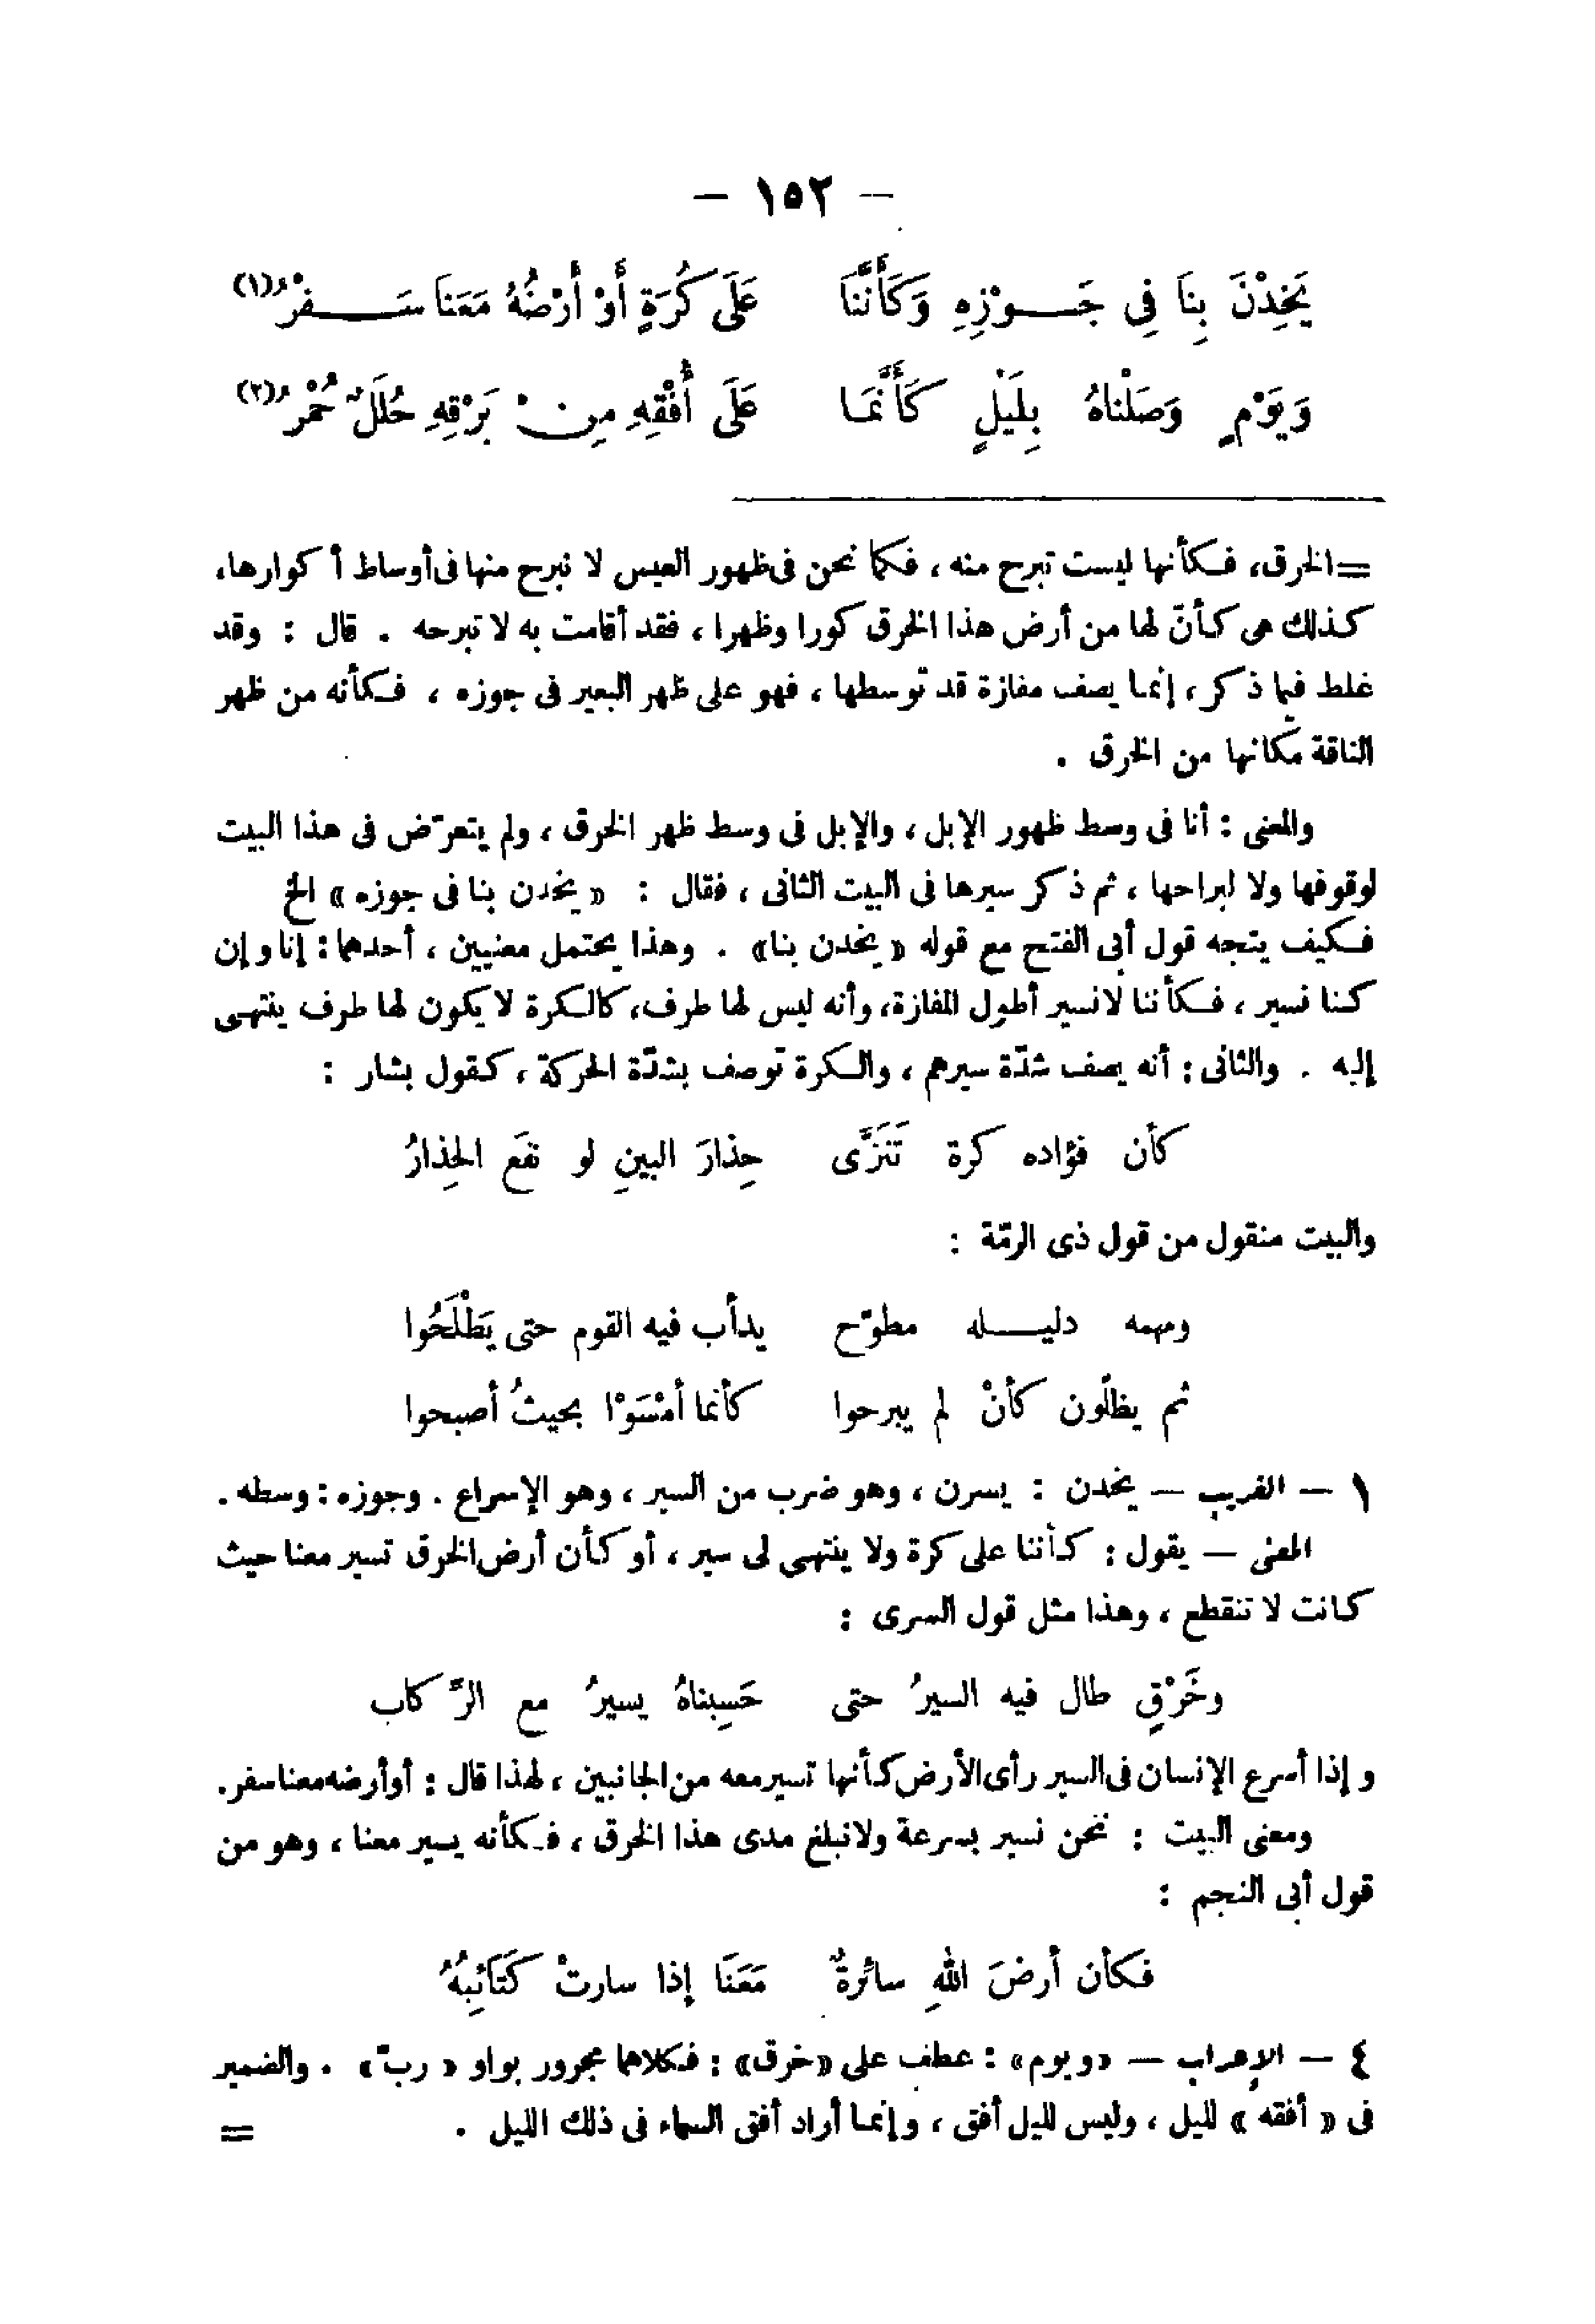 — ١٥٢ —
يَخِدْنَ بِنَا فِى جَوْزِهِ وَكَأَنَّنَا عَلَى كُرَةٍ أَوْ أَرْضُهُ مَعَنَا سَفْرُ(١)
وَيَوْمٍ وَصَلْناهُ بِلَيْلٍ كَأَنَّمَا عَلَى أُفْقِهِ مِنْ بَرْقِهِ حُلَلٌ حُمْرُ(٢)
=الخرق، فكأنها ليست تبرح منه ، فكما نحن فى ظهور العيس لا نبرح منها فى أوساط أكوارها،
كذلك هى كأنّ لها من أرض هذا الخرق كورا وظهرا ، فقد أقامت به لا تبرحه . قال : وقد
غلط فيما ذكر ، إنما يصف مفازة قد توسطها ، فهو على ظهر البعير فى جوزه ، فكأنه من ظهر
الناقة مكانها من الخرق .
والمعنى : أنا فى وسط ظهور الإبل ، والإبل فى وسط ظهر الخرق ، ولم يتعرّض فى هذا البيت
لوقوفها ولا لبراحها ، ثم ذكر سيرها فى البيت الثانى ، فقال : « يخدن بنا فى جوزه » الخ
فكيف يتجه قول أبى الفتح مع قوله « يخدن بنا» . وهذا يحتمل معنيين ، أحدهما : إنا وإن
كنا نسير ، فكأننا لا نسير لطول المفازة، وأنه ليس لها طرف، كالكرة لا يكون لها طرف ينتهى
إليه . والثانى : أنه يصف شدّة سيرهم ، والكرة توصف بشدّة الحركة ، كقول بشار :
كأن فؤاده كرة تَنَزَّى حِذارَ البينِ لو نفَع الحِذارُ
والبيت منقول من قول ذى الرمّة :
ومهمه دليله مطوّح يدأب فيه القوم حتى يَطْلَحُوا
ثم يظلّون كأنْ لم يبرحوا كأنما أمْسَوْا بحيثُ أصبحوا
١ — الغريب — يخدن : يسرن ، وهو ضرب من السير ، وهو الإسراع . وجوزه : وسطه .
المعنى — يقول : كأننا على كرة ولا ينتهى لى سير ، أو كأن أرض الخرق تسير معنا حيث
كانت لا تنقطع ، وهذا مثل قول السرى :
وخَرْقٍ طال فيه السيرُ حتى حَسِبناهُ يسيرُ مع الرِّكاب
وإذا أسرع الإنسان فى السير رأى الأرض كأنها تسير معه من الجانبين ، لهذا قال : أو أرضه معنا سفر.
ومعنى البيت : نحن نسير بسرعة ولا نبلغ مدى هذا الخرق ، فكأنه يسير معنا ، وهو من
قول أبى النجم :
فكأن أرضَ اللهِ سائرةٌ مَعَنَا إذا سارتْ كَتَائِبُهُ
٤ — الإعراب — «ويوم» : عطف على «خرق» : فكلاهما مجرور بواو « ربّ» . والضمير
فى « أفقه » لليل ، وليس لليل أفق ، وإنما أراد أفق السماء فى ذلك الليل . =